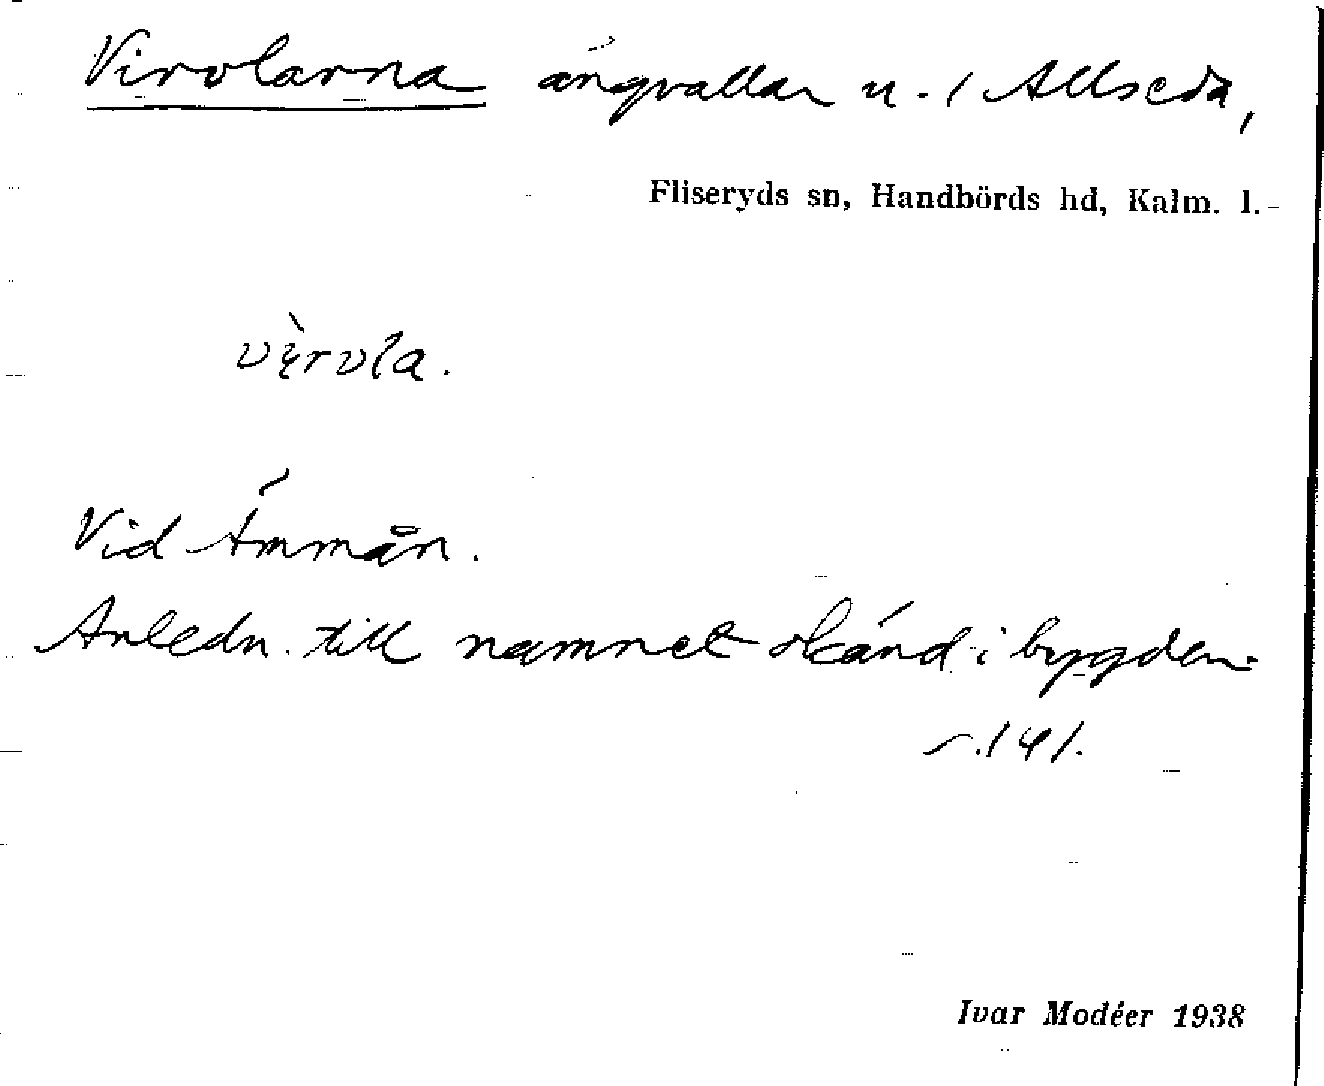 Virvlarna ängvallar u. / Allseda,
Fliseryds sn, Handbörds hd, Kalm. l.
vì̱rvla.
Vid Ämmån.
Anledn. till namnet okänd i bygden.
s. 141.
Ivar Modéer 1938